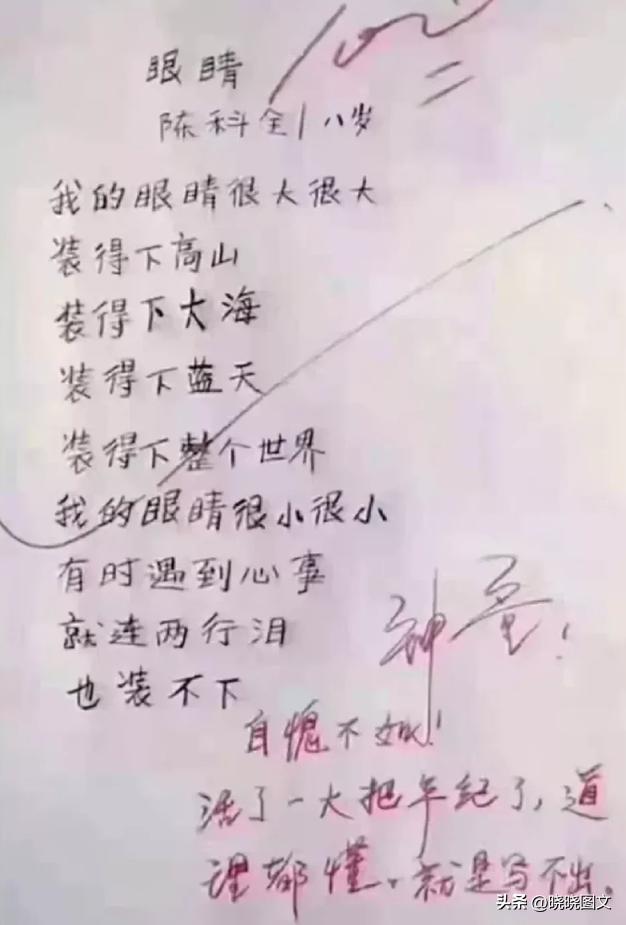 100
眼睛
陈科全 八岁
我的眼睛很大很大
装得下高山
装得下大海
装得下蓝天
装得下整个世界
我的眼睛很小很小
有时遇到心事
就连两行泪
也装不下
神童!
自愧不如!
活了一大把年纪了,道
理都懂。就是写不出。
头条 @晓晓图文